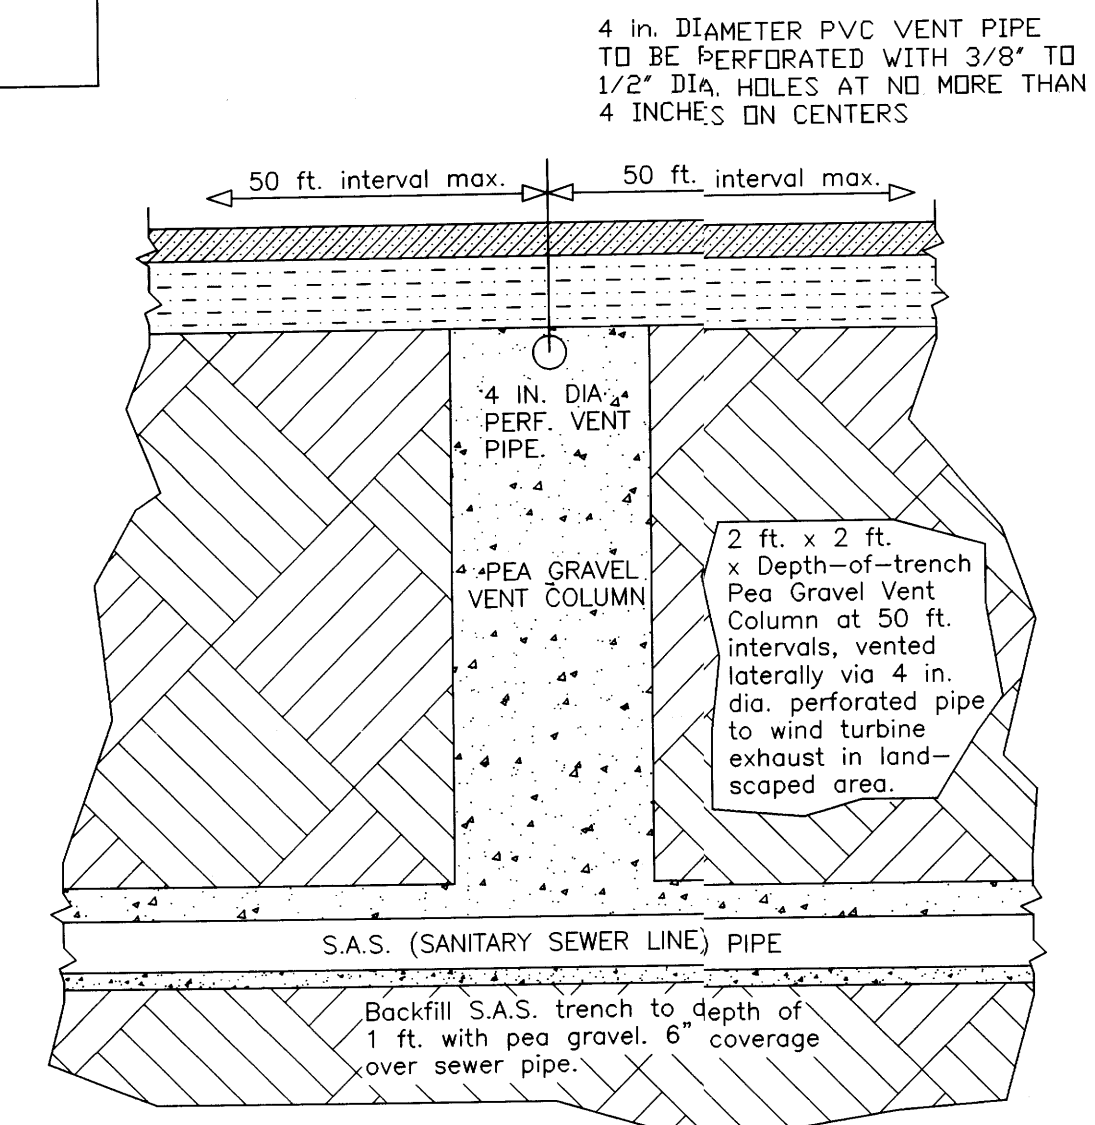 4 in. DIAMETER PVC VENT PIPE
TO BE PERFORATED WITH 3/8" TO
1/2" DIA. HOLES AT NO MORE THAN
4 INCHES ON CENTERS
50 ft. interval max.
50 ft. interval max.
4 IN. DIA.
PERF. VENT
PIPE.
PEA GRAVEL
VENT COLUMN
2 ft. x 2 ft.
x Depth-of-trench
Pea Gravel Vent
Column at 50 ft.
intervals, vented
laterally via 4 in.
dia. perforated pipe
to wind turbine
exhaust in land-
scaped area.
S.A.S. (SANITARY SEWER LINE) PIPE
Backfill S.A.S. trench to depth of
1 ft. with pea gravel. 6" coverage
over sewer pipe.